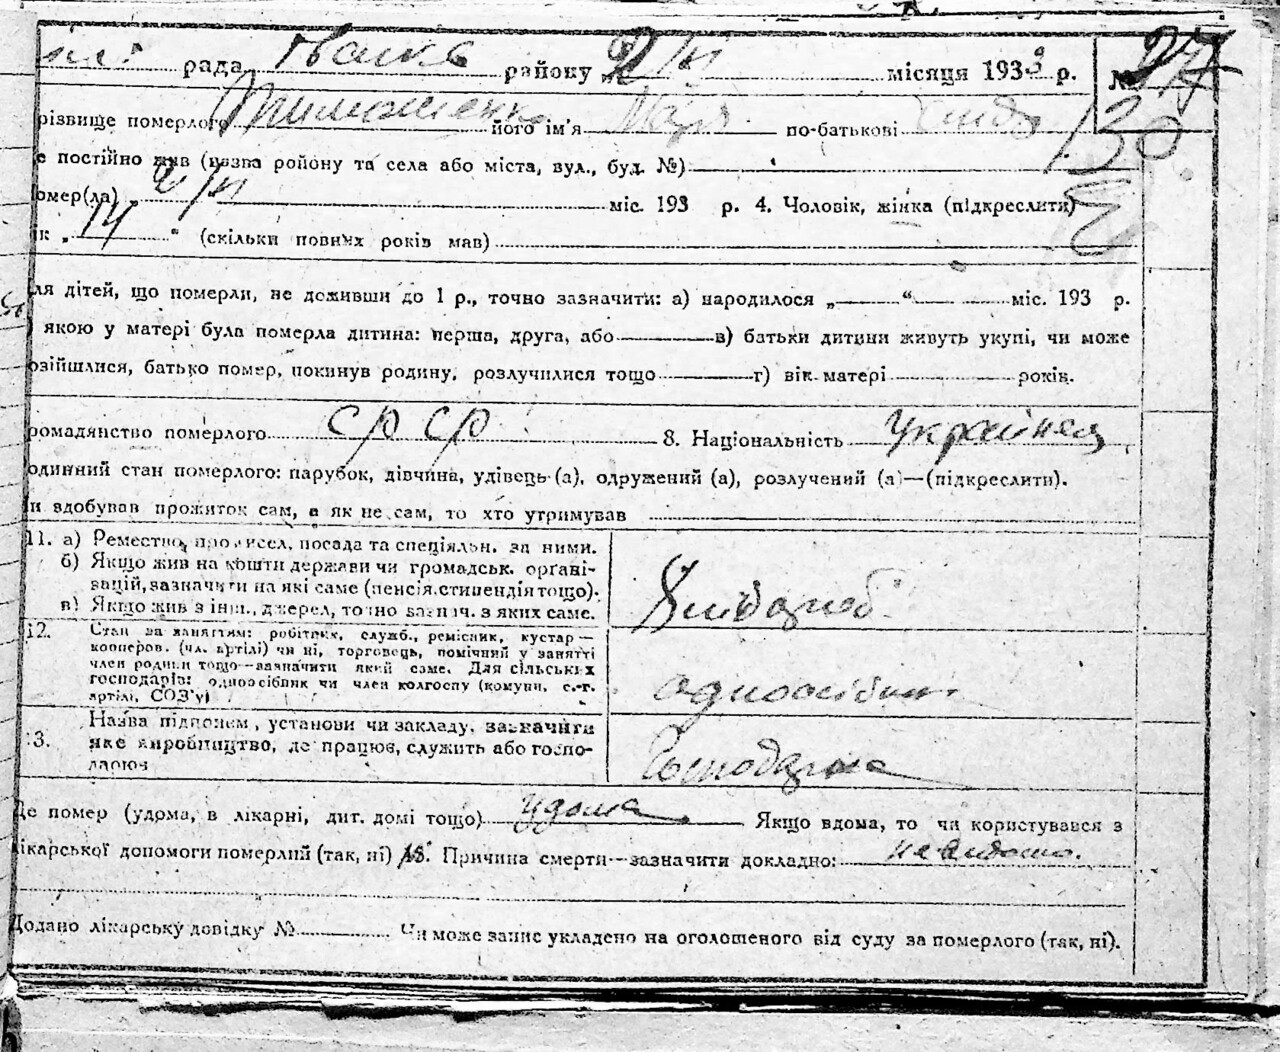 рада району 2/VI місяця 1933 р. № 27
різвище померлого Тимошенко його ім'я Марія по-батькові
130
е постійно жив (назва району та села або міста, вул., буд. №)
омер(ла) „ 2/VI міс. 193 р. 4. Чоловік, жінка (підкреслити)
ік „ 14 " (скільки повних років мав)
ля дітей, що померли, не доживши до 1 р., точно зазначити: а) народилося „ “ міс. 193 р.
) якою у матері була померла дитина: перша, друга, або в) батьки дитини живуть укупі, чи може
озійшлися, батько помер, покинув родину, розлучилися тощо г) вік матері років.
ромадянство померлого СРСР 8. Національність Українка
одинний стан померлого: парубок, дівчина, удівець (а), одружений (а), розлучений (а)—(підкреслити).
и здобував прожиток сам, а як не сам, то хто утримував
11. а) Ремество, промисел, посада та спеціяльн. за ними.
б) Якщо жив на кошти держави чи громадськ. орґані-
зацій, зазначити на які саме (пенсія, стипендія тощо).
в) Якщо жив з інш., джерел, точно зазнач. з яких саме.
Хлібороб
12. Стан за заняттям: робітник, служб., ремісник, кустар—
кооперов. (чл. артілі) чи ні, торговець, помічний у занятті
член родини тощо—зазначити який саме. Для сільських
господарів: одноосібник чи член колгоспу (комуни, с.-г.
артілі, СОЗ'у)
одноосібник
13. Назва підприєм., установи чи закладу, зазначити
яке виробництво, де працює, служить або госпо-
дарює
Господарка
Де помер (удома, в лікарні, дит. домі тощо) удома Якщо вдома, то чи користувався з
лікарської допомоги померлий (так, ні) 15. Причина смерти—зазначити докладно: невидомо.
Додано лікарську довідку № Чи може запис укладено на оголошеного від суду за померлого (так, ні).